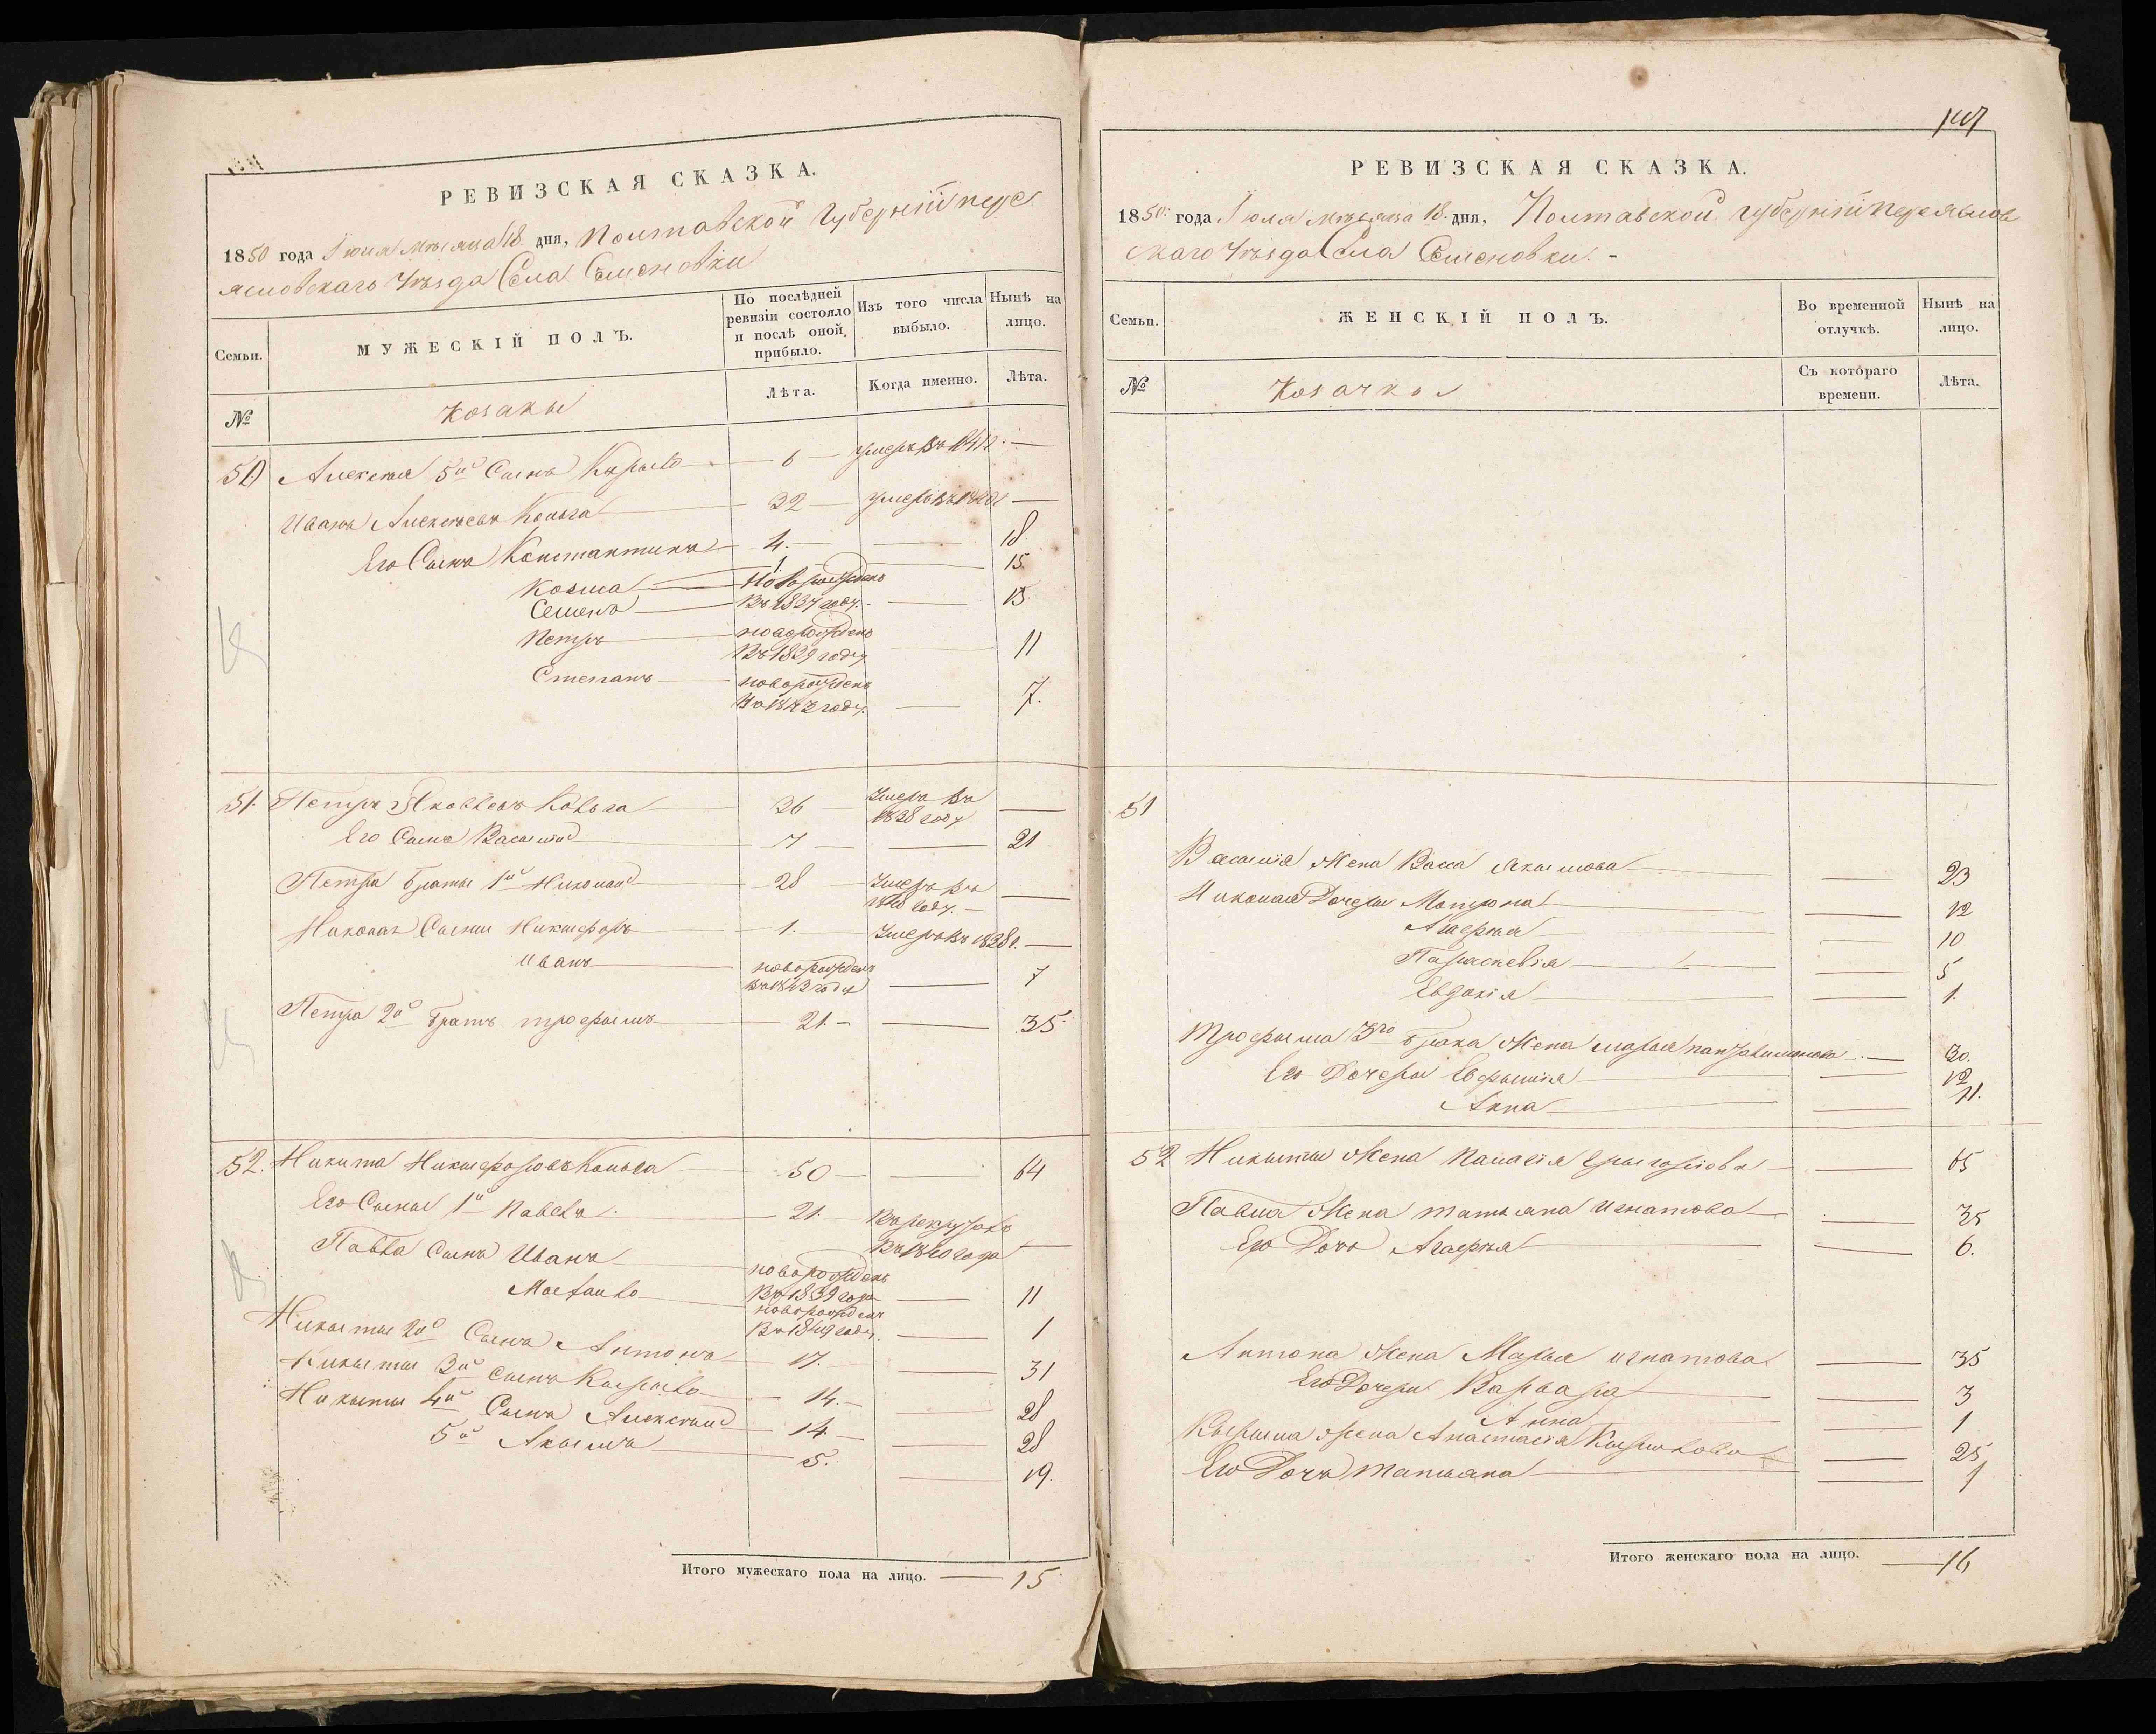 РЕВИЗСКАЯ СКАЗКА.
1850 года Іюля мѣсяца 18 дня, Полтавской Губерніи пере
яславскаго Уѣзда Села Семеновки
Семьи.
МУЖЕСКІЙ ПОЛЪ.
По послѣдней ревизіи состояло и послѣ оной, прибыло.
Изъ того числа выбыло.
Нынѣ на лицо.
№
Козаки
Лѣта.
Когда именно.
Лѣта.
50 Алексея 5й Сынъ Кирыло 6 умеръ въ
Иванъ Алексѣевъ 32 умеръ въ
Его Сынъ Константинъ 4. 18.
Козма 1. 15.
Семенъ новорожденъ
въ 1837 году. 13.
Петръ новорожденъ
въ 1839 году 11
Степанъ новорожденъ
году. 7.
51. Петръ Яковлевъ 36 Умеръ въ
1838 году
Его Сынъ Василій 7 21
Петра братъя 1й Николай 28 Умеръ въ
году.
Николая Сыны Никифоръ 1. Умеръ въ 1838 г.
Иванъ новорожденъ
въ 1843 году 7
Петра 2й братъ трофымъ 21. 35.
52. Никита Никифоровъ 50 64
Его Сыны 1й Павелъ 21. Въ рекруты
въ 1840 года
Павла Сынъ Иванъ новорожденъ
въ 1839 года 11
новорожденъ
въ 1849 году. 1
Никыты 2й Сынъ Антонъ 17. 31
Никыты 3й сынъ Кырыло 14. 28
Никыты 4й Сынъ Алексѣй 14. 28
5й Акымъ 5. 19.
Итого мужескаго пола на лицо. 15
РЕВИЗСКАЯ СКАЗКА.
1850 года Іюля мѣсяца 18 дня, Полтавской губерніи переяслов
скаго Уѣзда Села Семеновки.
Семьи.
ЖЕНСКІЙ ПОЛЪ.
Во временной отлучкѣ.
Нынѣ на лицо.
№
Козачкы
Съ котораго времени.
Лѣта.
51
Василія Жена Васса Акымова 23
Николая Дочеры Мотрона 12
Агафья 10
Параскевія 5
Евдокія 1.
Трофыма 3го брака Жена Марья 30.
Его Дочеры Евфымія 12
Анна 11.
52 Никыты Жена Палагія Грыгоріова 65
Павла Жена татьяна Игнатова 35
Его Дочь Агафья 6.
Антона Жена Марья игнатова 35
Его Дочеры Варвара 3
Анна 1
Кырыла жена Анастасія Кырылова 25
Его Дочь татьяна 1
Итого женскаго пола на лицо. 16